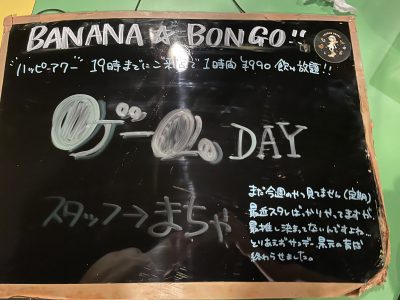 BANANA☆BONGO!!
"ハッピーアワー" 19時までにご来店で1時間 ¥990 飲み放題!!
ゲームDAY
スタッフ→まちゃ
まだ今週のやつ見てません(定期)
最近スタレばっかりやってますが、
最推し決まってないんですよね…
とりあえずサンデー黒元の有問
終わらせました。